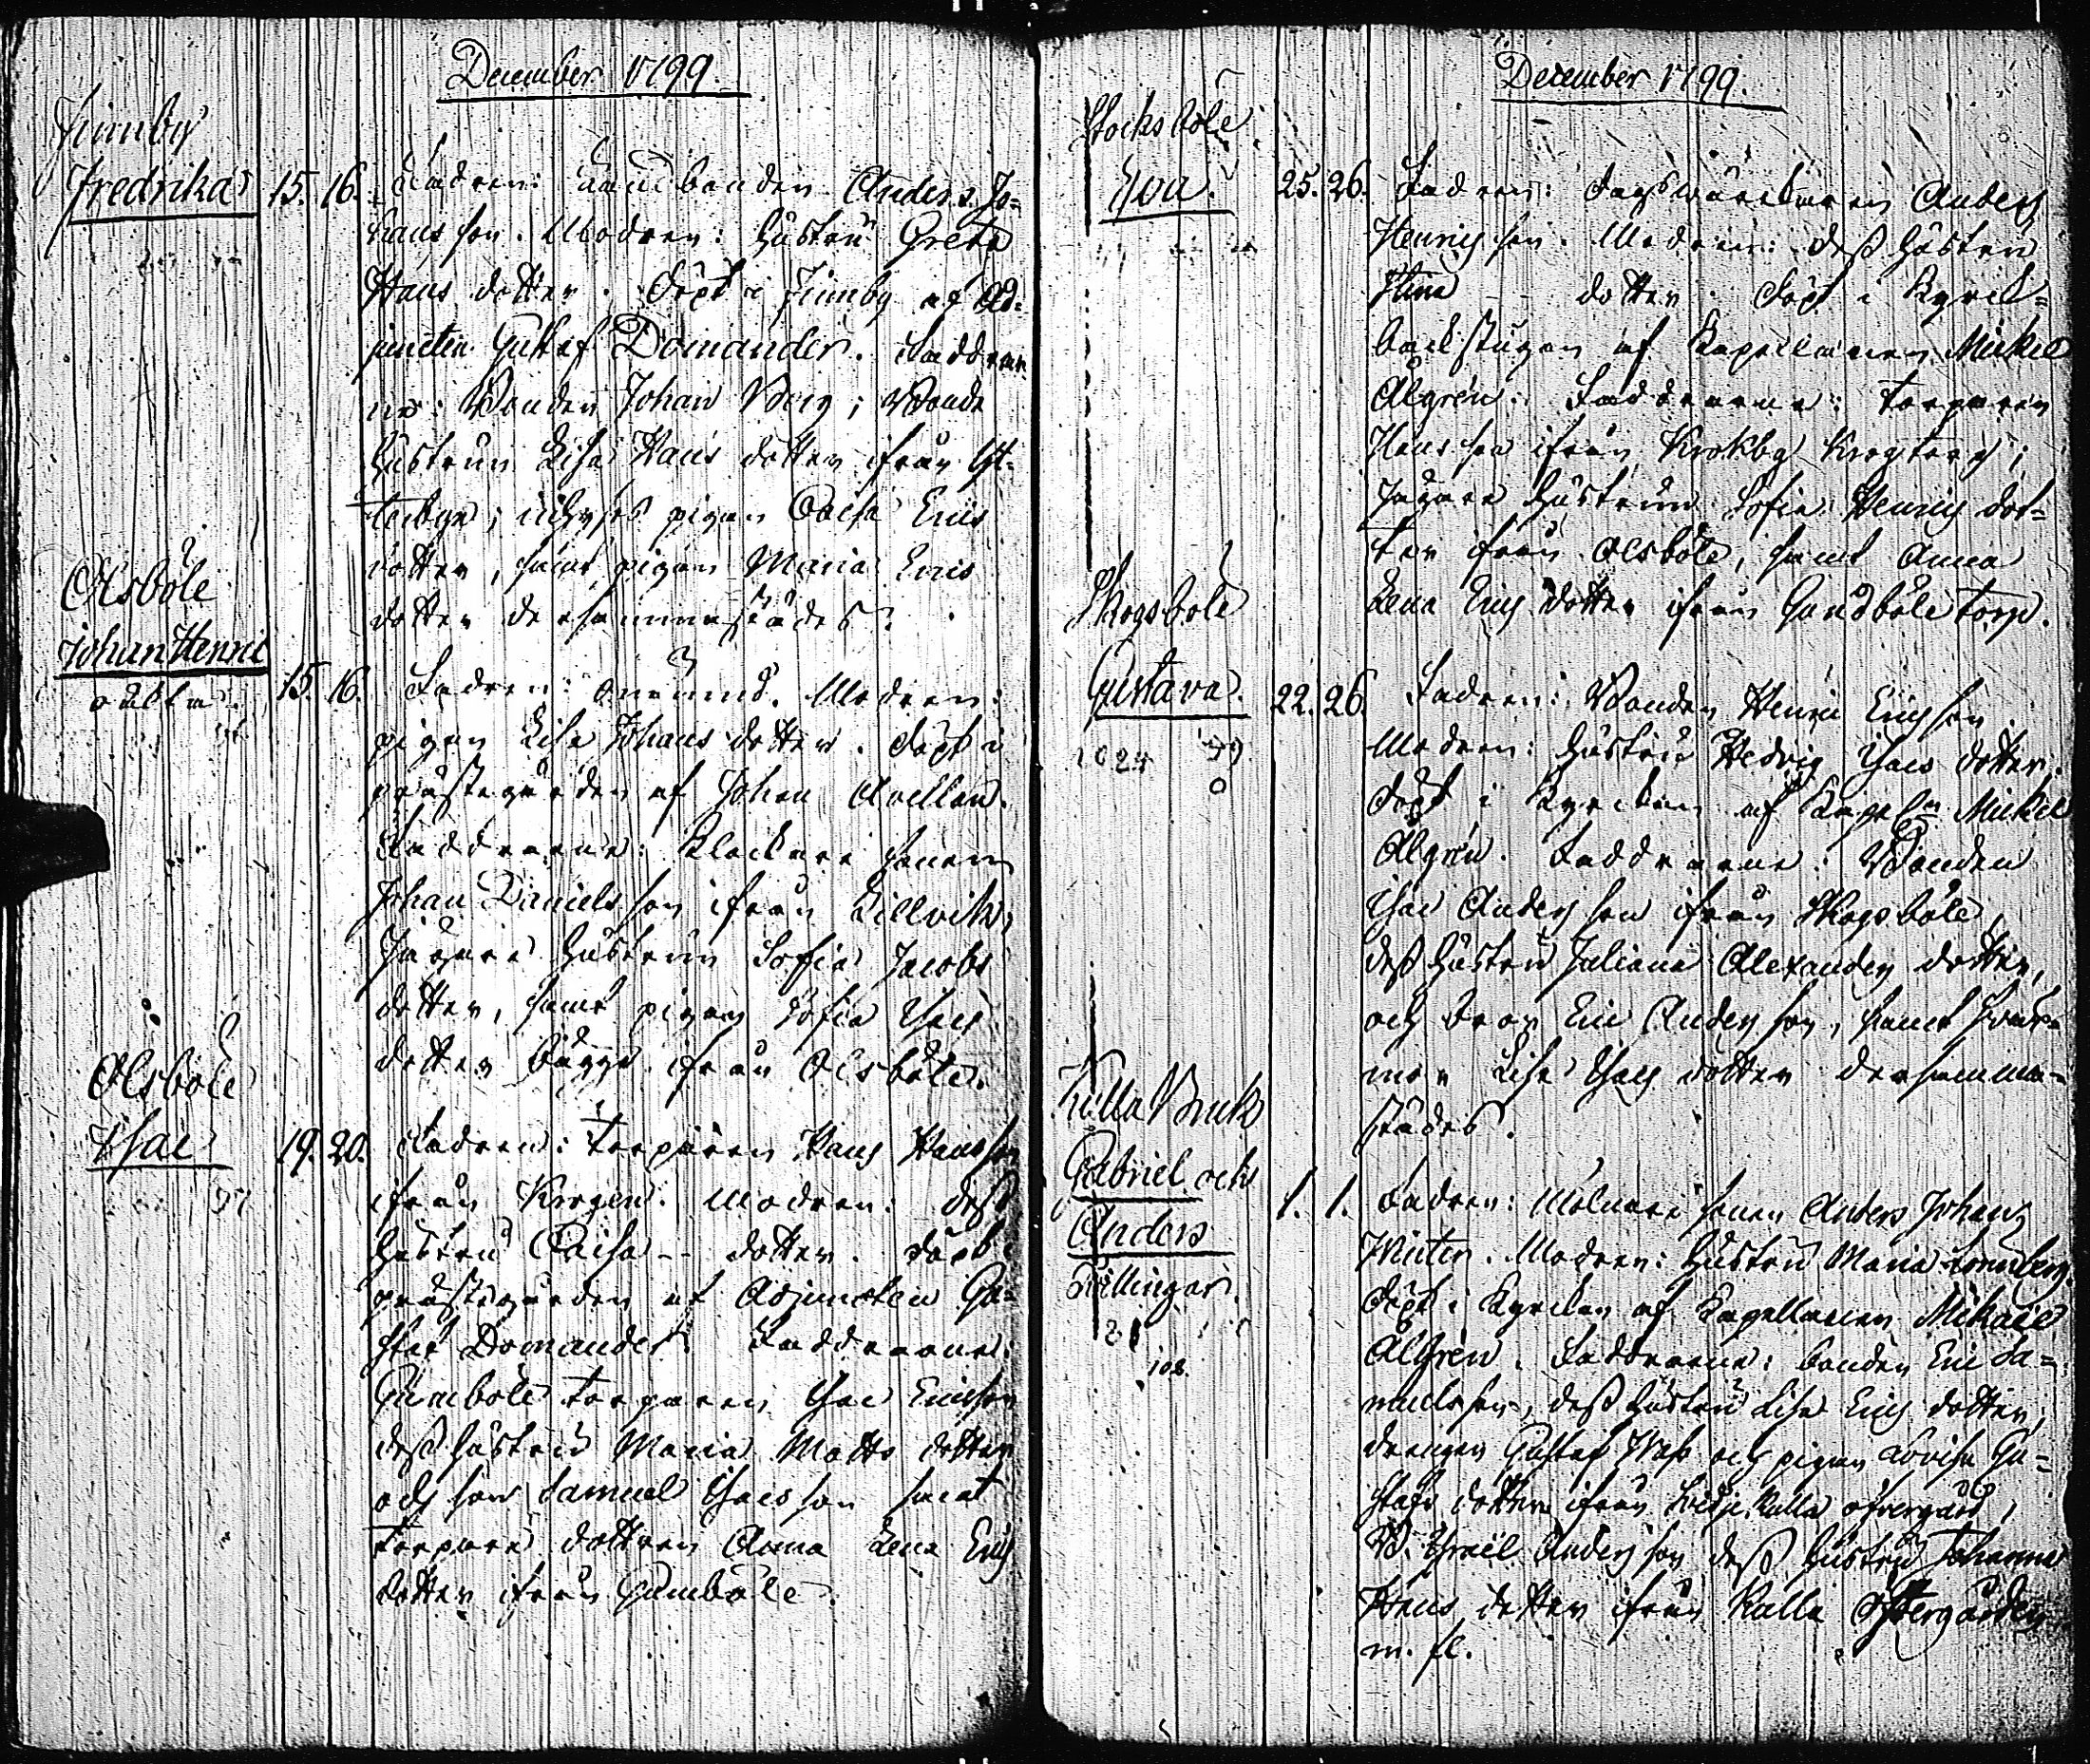 December 1799.
Fimby
Fredrika 15. 16. Fadren: Landbonden Anders Jo=
hans son. Modren: Hustru Greta
Hans dotter. döpt i Fimby af Ad=
juncten Gustaf Domander. Faddrar
ne: Bonden Johan Berg; Bonde
Hustrun Lisa Hans dotter ifrån
pigan Caisa Erics
dotter, samt pigan Maria Erics
dotter dersammastädes.
Olsböle
Johan Henric
oäkta. 15. 16. Fadren: onämnd. Modren:
pigan Lisa Johans dotter. döpt i
prästegården af Johan Avellan.
Faddrarne: Klockare sonen
Johan Daniels son ifrån Lillvik,
Jägare Hustrun Sofia Jacobs
dotter, samt pigan Sofia Isacs
dotter bägge ifrån Olsböle.
Olsböle
Isac 19. 20. Fadren: Torparen Hans Hans son
ifrån Krogen. Modren: dess
Hustru Caisa -- dotter. döpt i
prästegården af Adjuncten Gu=
staf Domander. Faddrarne:
Gumböle torparen Isac Ericsson
dess Hustru Maria Matts dotter
och son Samuel Isacs son samt
Torpare dottren Anna Lena Erics
dotter ifrån Gumböle.
December 1799.
Stocksböle
25. 26. Fadren: Anders
Henrics son. Modren: dess Hustru
Stina -- dotter. döpt i Kyrck=
backstugan af Kapellanen Mickel
Algrén. Faddrarne: Torparen
Hans son ifrån Krokby Krogtorp;
Jägare Hustrun Sofia Henrics dot=
ter ifrån Olsböle, samt Anna
Lena Erics dotter ifrån Gundböle torp.
Skogsböle
Gustava. 22. 26. Fadren: Bonden Henric Erics son
1024 Modren: Hustru Hedvig Isacs dotter.
döpt i Kyrckan af Mickel
Algrén. Faddrarne: Bonden
Isac Anders son ifrån Skogsböle,
dess Hustru Juliana Alexanders dotter,
och bror Eric Anders son, samt svär=
mor Lisa Isacs dotter dersamma=
städes.
Kulla Bruk
Gabriel och 1. 1. Fadren: Molnare sonen Anders Johan
Anders Winter. Modren: Hustru Maria
Tvillingar. döpt i Kyrckan af Kapellanen Mikael
Algrén. Faddrarne: bonden Eric Sa=
108. muelsson, dess Hustru Lisa Erics dotter,
drengen Gustaf och pigan Lovisa Gu=
stafs dotter ifrån Kulla öfvergård,
B. Israël Anders son dess Hustru Johanna
Hans dotter ifrån Kulla Öfvergården
m. fl.